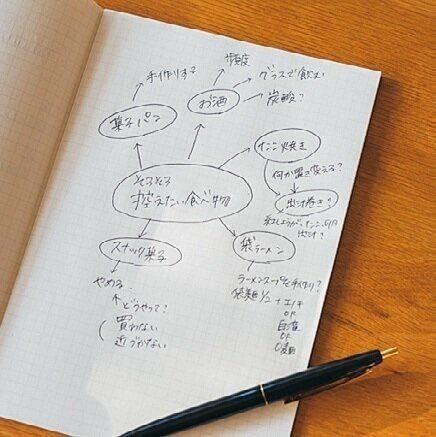 頻度
手作りする
グラスで飲む
炭酸？
お酒
菓子パン
たこ焼き
何か置き変える？
そろそろ
控えたい食べ物
だし巻き？
紅しょうが、たこ、
だし？
スナック菓子
袋ラーメン
やめる
どうやって？
買わない
近づかない
ラーメンスープを手作り？
袋麺1/2 + エノキ
or
or